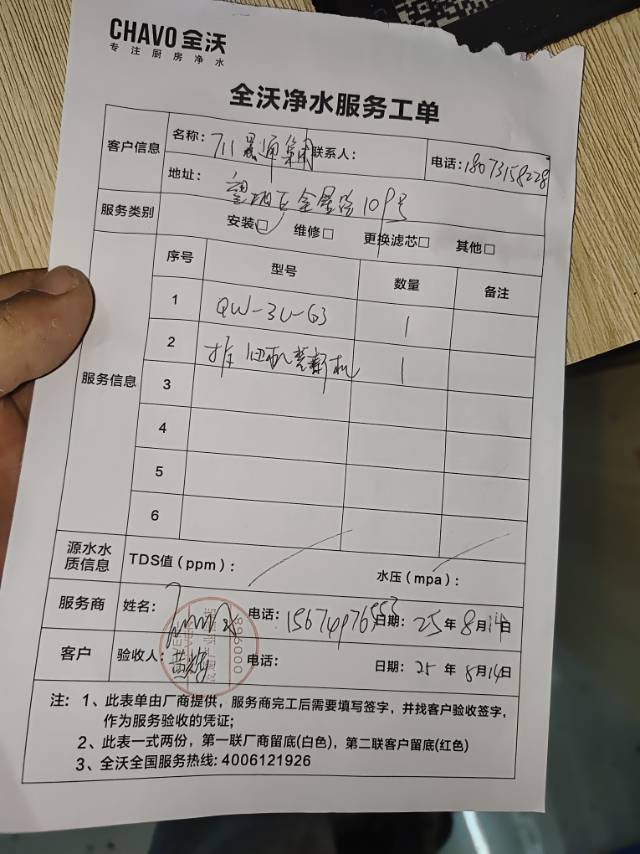 CHAVO全沃
专注厨房净水
全沃净水服务工单
客户信息
名称：
联系人：
电话：18073158228
地址：
109号
服务类别
安装☑ 维修□ 更换滤芯□ 其他□
服务信息
序号 型号 数量 备注
1 QW-3U-G3 1
2 1
3
4
5
6
源水水质信息
TDS值（ppm）： 水压（mpa）：
服务商 姓名： 电话： 日期：25年8月14日
客户 验收人： 电话： 日期：25年8月14日
注：1、此表单由厂商提供，服务商完工后需要填写签字，并找客户验收签字，
作为服务验收的凭证；
2、此表一式两份，第一联厂商留底(白色)，第二联客户留底(红色)
3、全沃全国服务热线: 4006121926